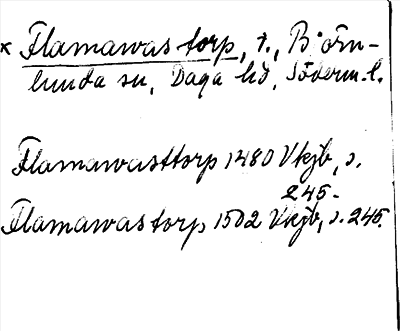 × Flamawastorp, t., Björn-
lunda sn, Daga hd, Söderm. l.
Flamawasttorp 1480 Vkjb, s.
245.
Flamawastorp 1502 Vkjb, s. 245.